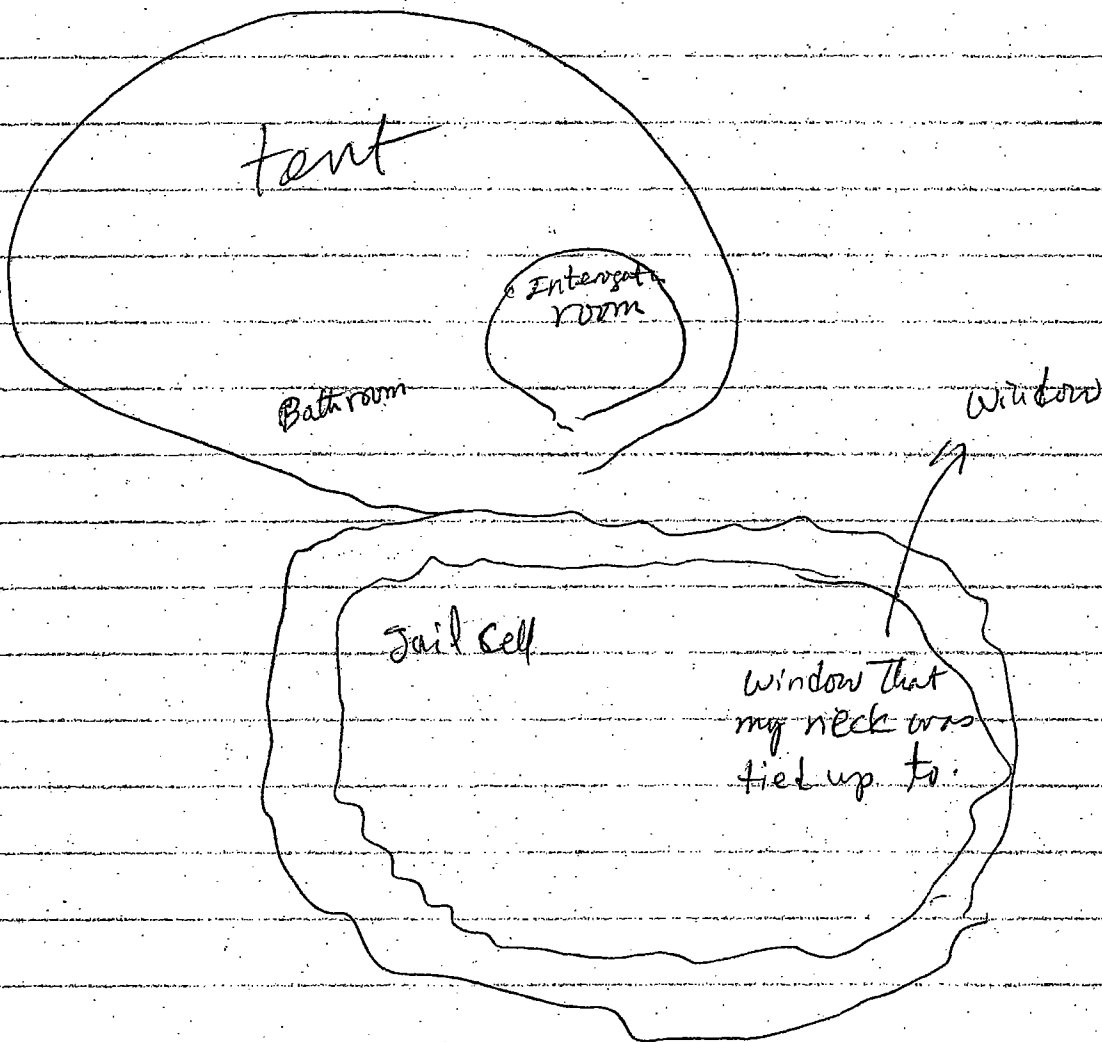 tent
Interogati
room
Bathroom
window
Jail Sell
window That
my neck was
tied up to.